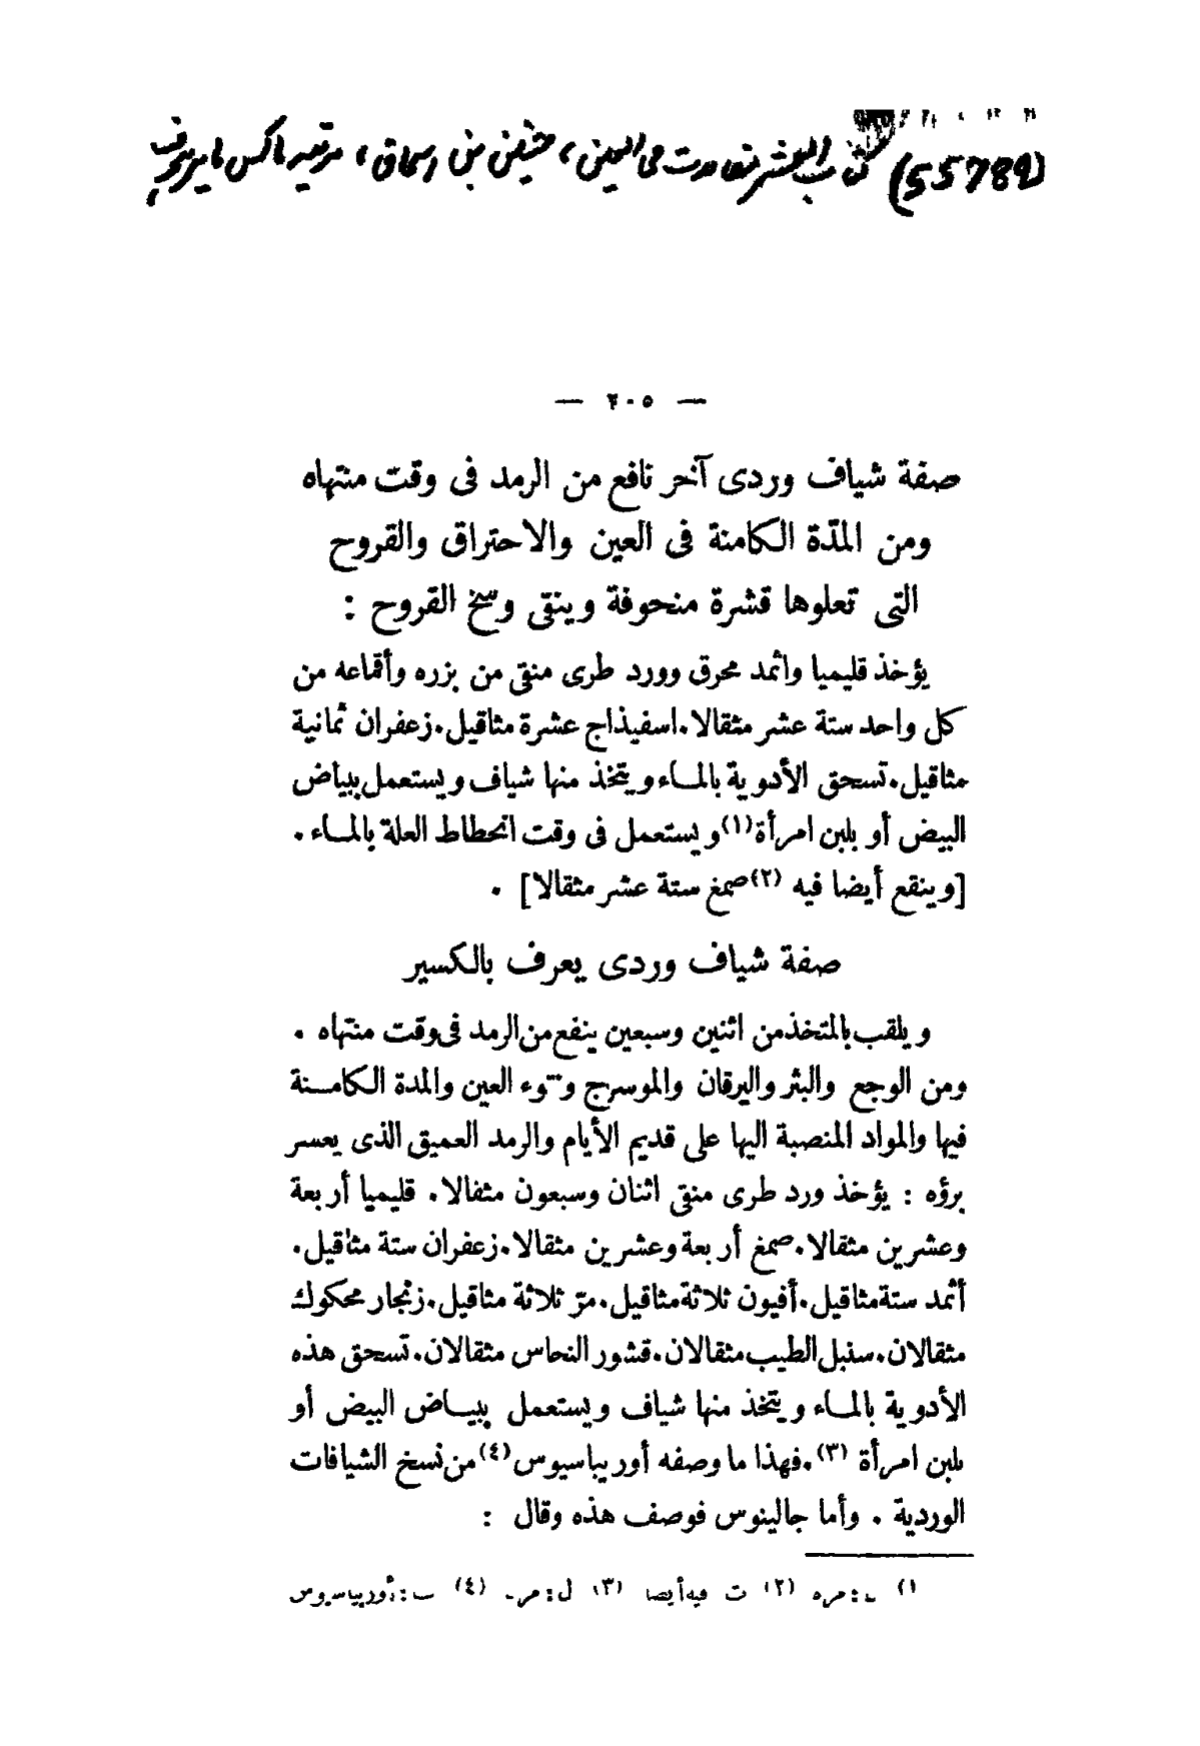 (55789) كتاب العشر مقالات فى العين، حنين بن اسحاق، مرتبه ماكس مايرهوف
— ٢٠٥ —
صفة شياف وردى آخر نافع من الرمد فى وقت منتهاه
ومن المدّة الكامنة فى العين والاحتراق والقروح
التى تعلوها قشرة منحوفة وينقى وسخ القروح :
يؤخذ قليميا واثمد محرق وورد طرى منقى من بزره وأقماعه من
كل واحد ستة عشر مثقالا. اسفيذاج عشرة مثاقيل. زعفران ثمانية
مثاقيل. تسحق الأدوية بالمـاء ويتخذ منها شياف ويستعمل ببياض
البيض أو بلبن امرأة (١) ويستعمل فى وقت انحطاط العلة بالمـاء .
[وينقع أيضا فيه (٢) صمغ ستة عشر مثقالا] .
صفة شياف وردى يعرف بالكسير
ويلقب بالمتخذ من اثنين وسبعين ينفع من الرمد فى وقت منتهاه .
ومن الوجع والبثر واليرقان والموسرج ونتوء العين والمدة الكامـنة
فيها والمواد المنصبة اليها على قديم الأيام والرمد العميق الذى يعسر
برؤه : يؤخذ ورد طرى منقى اثنان وسبعون مثقالا . قليميا أربعة
وعشرين مثقالا. صمغ أربعة وعشرين مثقالا. زعفران ستة مثاقيل.
أثمد ستة مثاقيل. أفيون ثلاثة مثاقيل. مرّ ثلاثة مثاقيل. زنجار محكوك
مثقالان. سنبل الطيب مثقالان. قشور النحاس مثقالان. تسحق هذه
الأدوية بالمـاء ويتخذ منها شياف ويستعمل ببيـاض البيض أو
بلبن امرأة (٣). فهذا ما وصفه أوريباسيوس (٤) من نسخ الشيافات
الوردية . وأما جالينوس فوصف هذه وقال :
(١ مره (٢) ت فيه أيضا (٣) ل: (٤) ت: أوربياسيوس